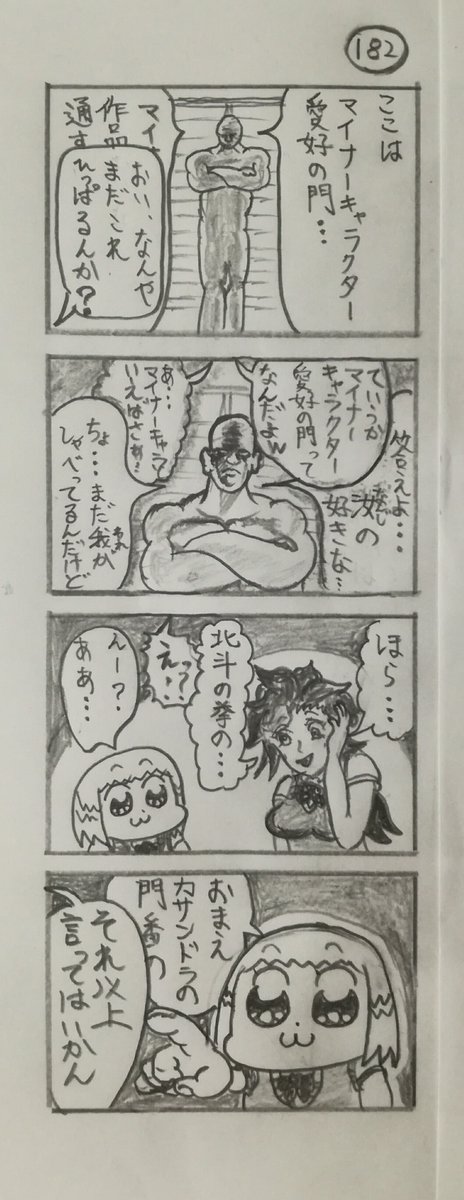 182
ここは
マイナーキャラクター
愛好の門…
マイ
作品
通す
おい、なんや
まだこれ
ひっぱるんか?
答えよ…
汝の
なんじ
好きな…
ていうか
マイナー
キャラクター
愛好の門って
なんだよw
あ…
マイナーキャラと
いえばさぁ!
ちょ…まだ我が
われ
しゃべってるんだけど
ほら…
北斗の拳の…
えっ?…
んー?
ああ…
おまえ
カサンドラの
門番の
それ以上
言ってはいかん